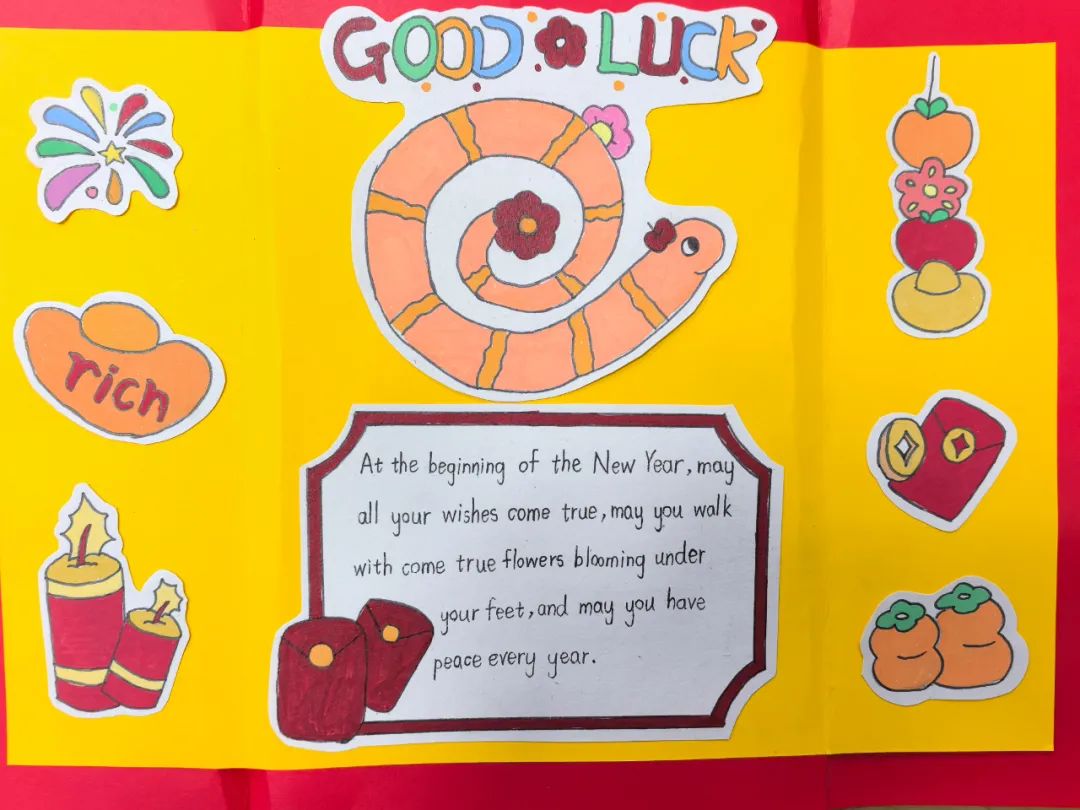 GOOD LUCK
rich
At the beginning of the New Year, may
all your wishes come true, may you walk
with come true flowers blooming under
your feet, and may you have
peace every year.